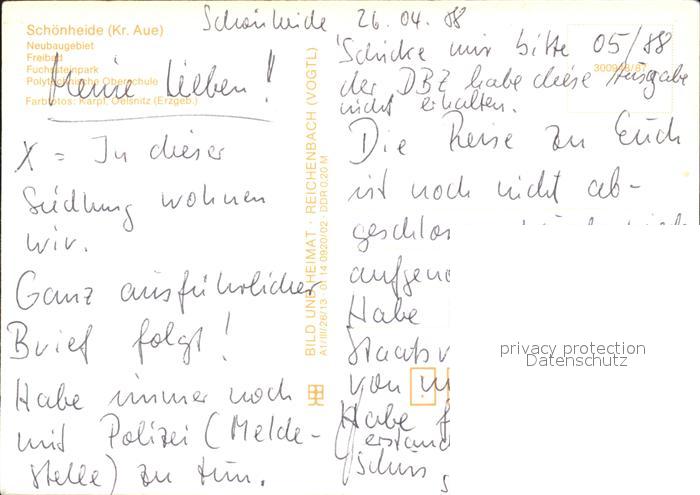 Schönheide 26.04.88
Schönheide (Kr. Aue)
Neubaugebiet
Freibad
Fuchssteinpark
Polytechnische Oberschule
Farbfotos: Karpf, Oelsnitz (Erzgeb.)
Meine Lieben!
X = In dieser
Siedlung wohnen
wir.
Ganz ausführlicher
Brief folgt!
Habe immer noch
mit Polizei (Melde-
stelle) zu tun.
BILD UND HEIMAT · REICHENBACH (VOGTL)
A1/III/26/13 01 14 0920/02 DDR 0,20 M
Schicke mir bitte 05/88
der DBZ habe diese Ausgabe
nicht erhalten.
Die Reise zu Euch
ist noch nicht ab-
geschlos
aufgeno
Habe
Staatsv
von
Habe f
erstand
Schüs
privacy protection
Datenschutz